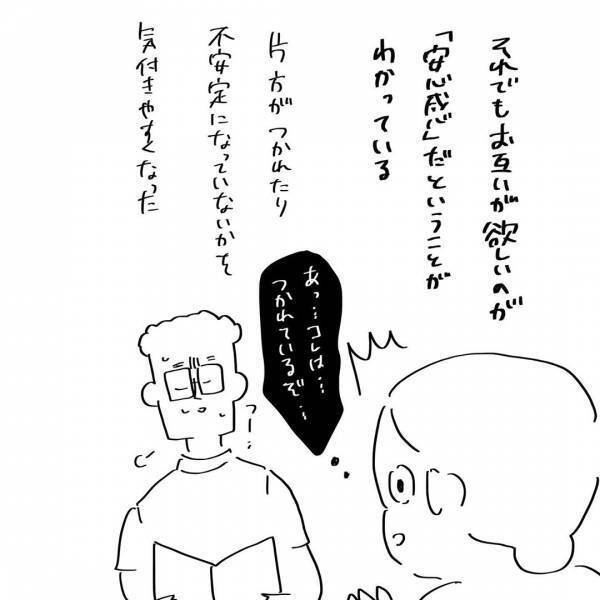 それでもお互いが欲しいのが
「安心感」だということが
わかっている
片方がつかれたり
不安定になっていないかを
気付きやすくなった
あっ…コレは…
つかれているぞ…